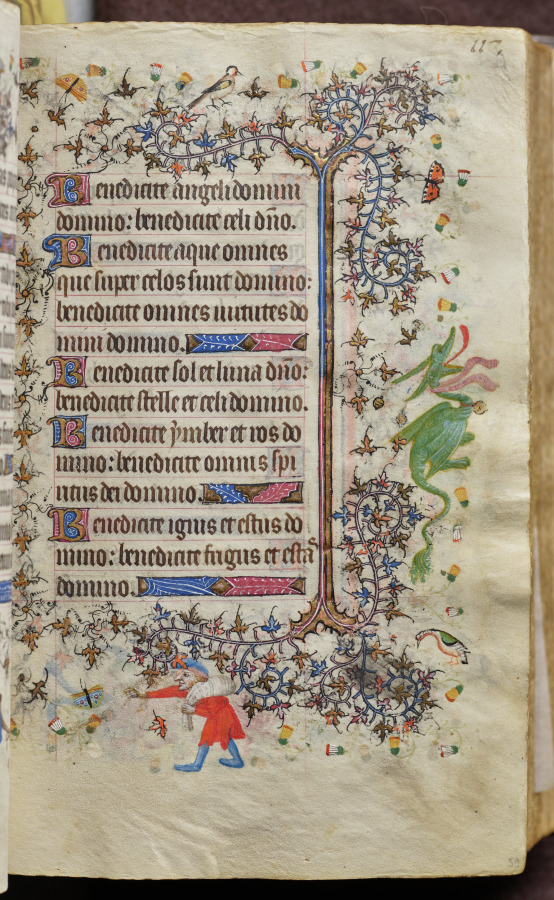 Benedicite angeli domini
domino: benedicite celi dño.
Benedicite aque omnes
que super celos sunt domino:
benedicite omnes uirtutes do
mini domino.
Benedicite sol et luna dño:
benedicite stelle et celi domino.
Benedicite ymber et ros do
mino: benedicite omnis spi
ritus dei domino.
Benedicite ignis et estus do
mino: benedicite frigus et estã
domino.
59